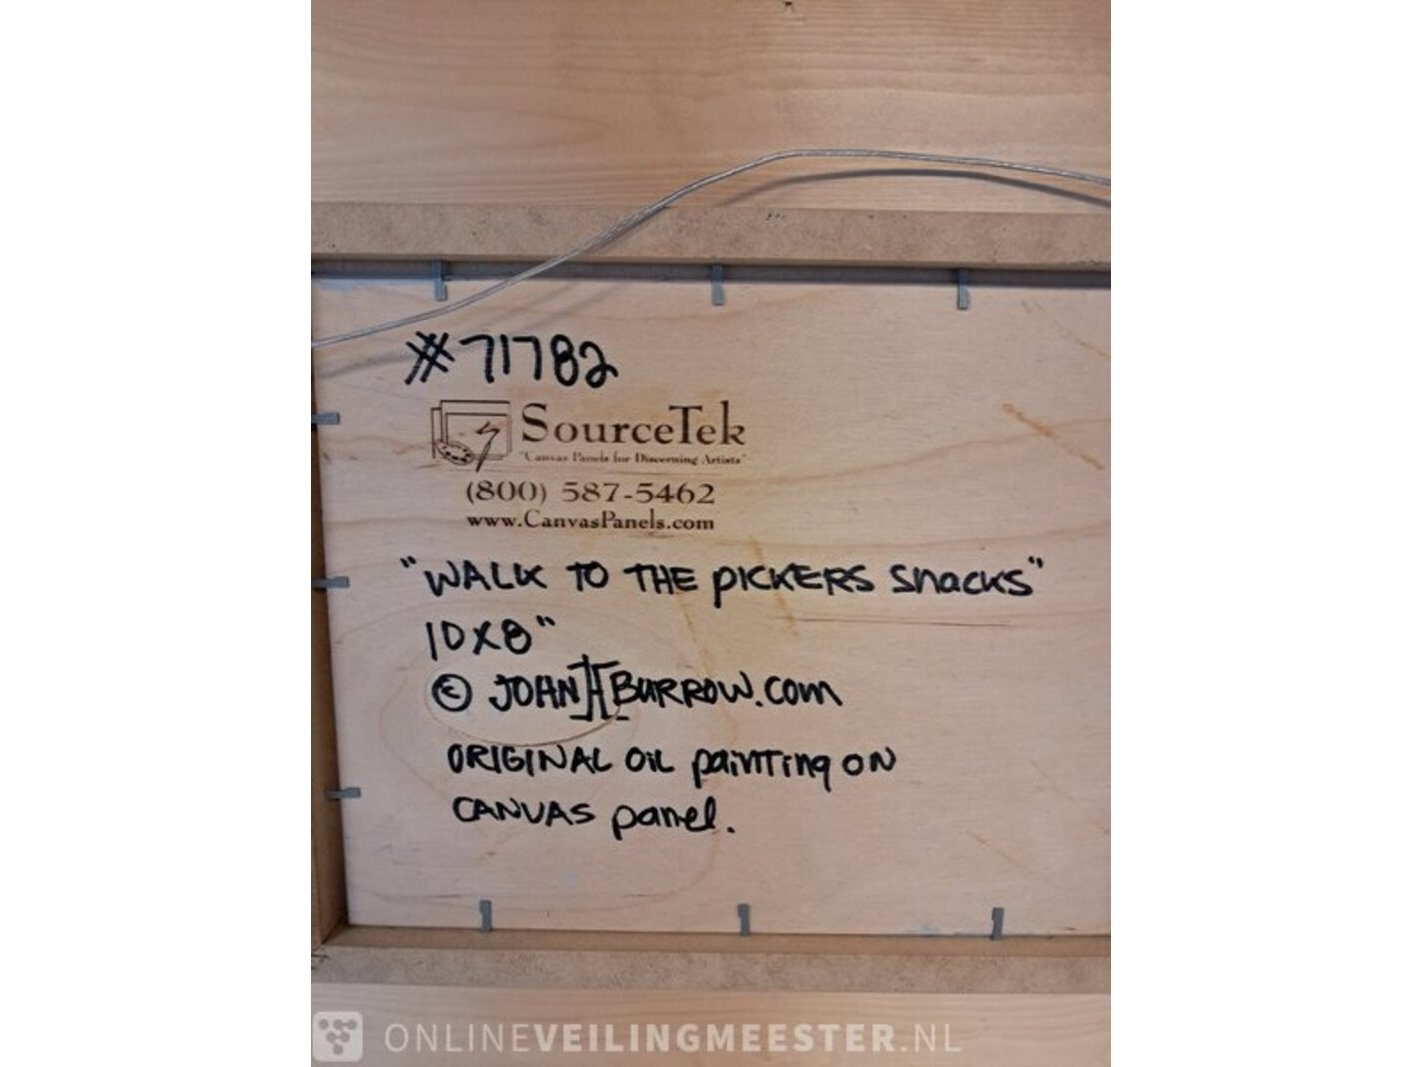 #71782
SourceTek
"Canvas Panels for Discerning Artists"
(800) 587-5462
www.CanvasPanels.com
"WALK TO THE PICKERS SnacKS"
10x8"
© JOHN H BURROW.com
ORIGINAL OIL painTing ON
CANVAS panel.
ONLINEVEILINGMEESTER.NL